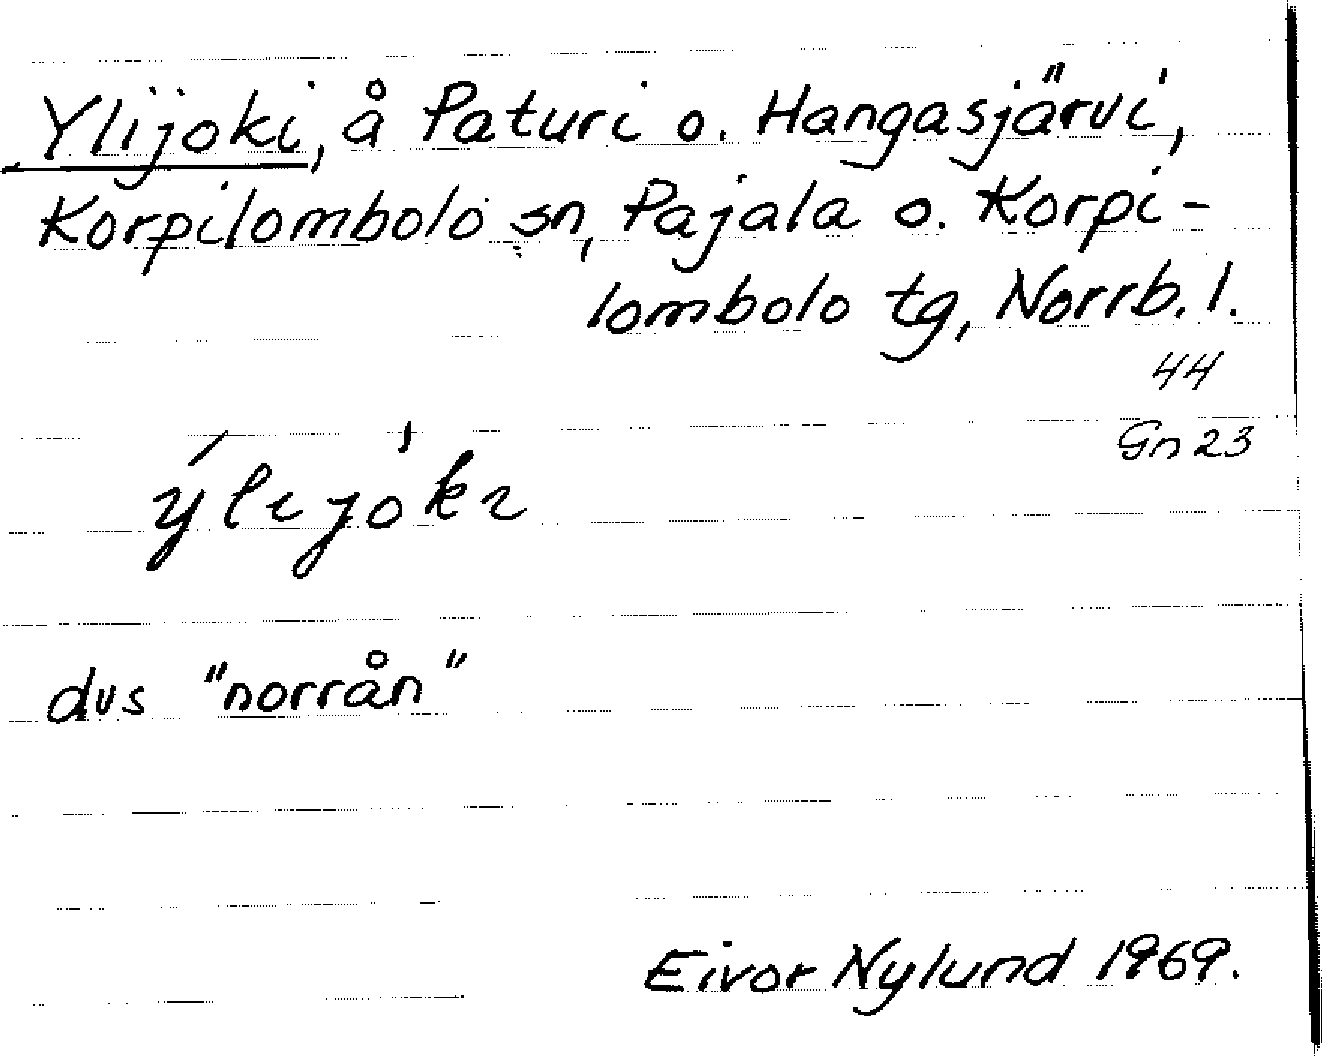 Ylijoki, å Paturi o. Hangasjärvi,
Korpilombolo sn, Pajala o. Korpi-
lombolo tg, Norrb. l.
44
Gn 23
ýlijòki
dvs "norrån"
Eivor Nylund 1969.